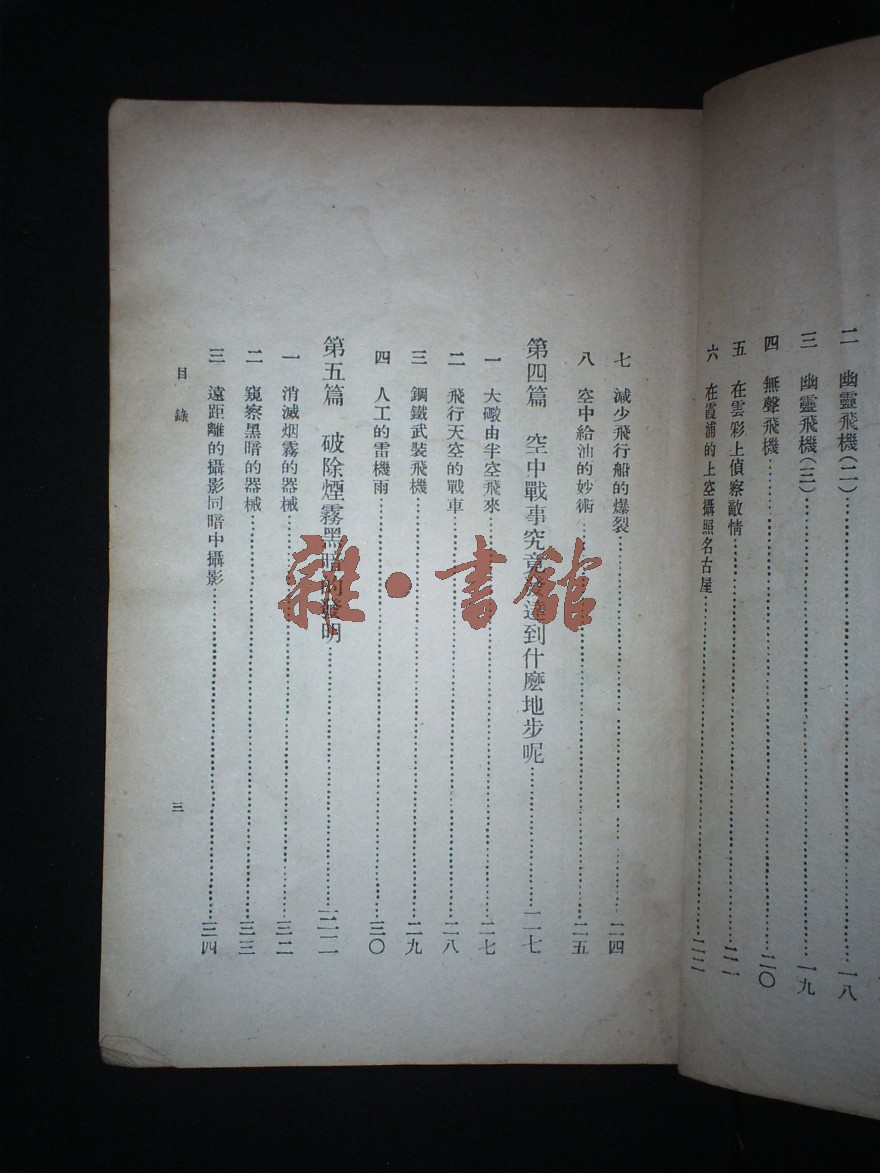 二　幽靈飛機(二)……一八
三　幽靈飛機(三)……一九
四　無聲飛機……二〇
五　在雲彩上偵察敵情……二一
六　在霞浦的上空攝照名古屋……二二
七　減少飛行船的爆裂……二四
八　空中給油的妙術……二五
第四篇　空中戰事究竟發達到什麽地步呢……二七
一　大礮由半空飛來……二七
二　飛行天空的戰車……二八
三　鋼鐵武裝飛機……二九
四　人工的雷機雨……三〇
第五篇　破除煙霧黑暗的發明……三二
一　消滅烟霧的器械……三二
二　窺察黑暗的器械……三三
三　遠距離的攝影同暗中攝影……三四
目錄
三
雜·書館